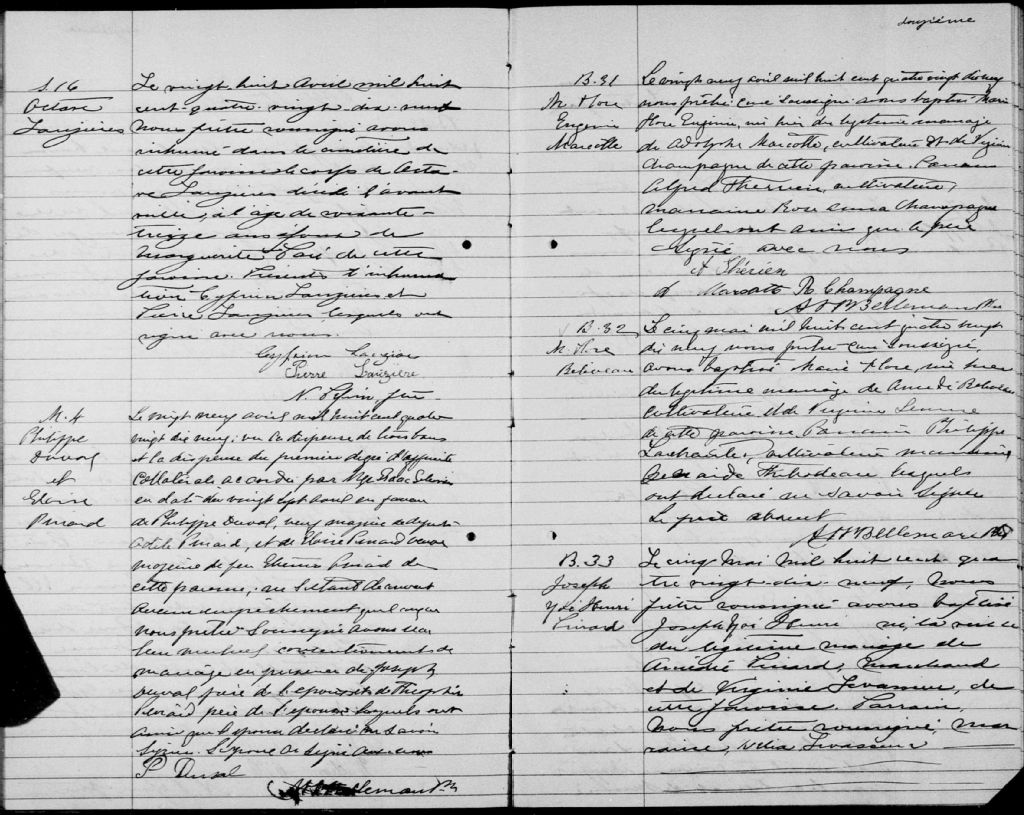 S. 16
Octave
Lauzières
Le vingt huit Avril mil huit
cent quatre vingt dix neuf
Nous prêtre soussigné avons
inhumé dans le cimetière de
cette paroisse le corps de Octa-
ve Lauzières décédé l'avant
veille, à l'âge de soixante-
treize ans époux de
Marguerite Pagé de cette
paroisse. Présents à l'inhuma-
tion Cyprien Lauzières et
Pierre Lauzières lesquels ont
signé avec nous.
Cyprien Lauziere
Pierre Lauzière
M. 4
Philippe
Duval
et
Eloise
Pinard
Le vingt neuf avril mil huit cent quatre
vingt dix neuf; vu la dispense de trois bans
et la dispense du premier degré d'affinité
Collatérale accordée par
en date du vingt sept avril en faveur
de Philippe Duval, veuf majeur de défunte
Adèle Pinard, et de Eloise Pinard veuve
majeure de feu Etienne Girard de
cette paroisse, ne s'étant découvert
Aucun empêchement quelconque
Nous prêtre Soussigné avons reçu
leur mutuel consentement de
mariage en présence de Joseph
Duval père de l'époux et de Théophile
Pinard père de l'épouse lesquels ont
ainsi que l'épouse déclaré ne savoir
Signer. L'époux a signé avec nous
P Duval
douzième
B. 31
M. Flore
Eugenie
Marcotte
Le vingt neuf avril mil huit cent quatre vingt dix neuf
nous prêtre curé soussigné avons baptisé Marie
Flore Eugénie, née hier du légitime mariage
de Adolphe Marcotte, cultivateur et de Virginie
Champagne de cette paroisse. Parrain
Alfred Therrien, cultivateur,
marraine Rose anna Champagne
lesquels ont ainsi que le père
signé avec nous
A Thérien
A Marcotte R Champagne
A H Bellemare Ptre
B. 32
M. Flore
Beliveau
Le cinq mai mil huit cent quatre vingt
dix neuf nous prêtre curé soussigné
avons baptisé Marie Flore, née hier
du légitime mariage de Amédé Beliveau
Cultivateur et de Virginie
de cette paroisse Parrain Philippe
cultivateur marraine
Thibodeau lesquels
ont déclaré ne savoir signer
Le père absent
A H Bellemare Ptre
B. 33
Joseph
Zoé Henri
Pinard
Le cinq Mai mil huit cent qua
tre vingt dix neuf, Nous
prêtre soussigné avons baptisé
Joseph Zoé Henri né, la veille
du légitime mariage de
Pinard, Marchand
et de Virginie Levasseur, de
cette paroisse. Parrain,
Nous prêtre soussigné, mar
raine, Délia Levasseur